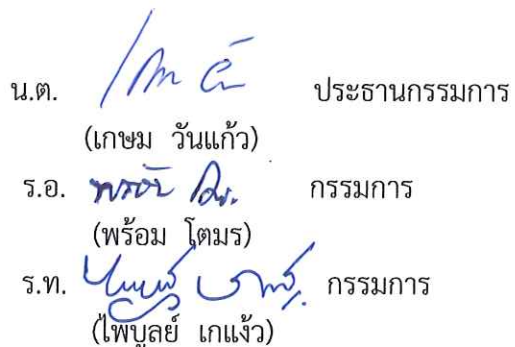 น.ต. ประธานกรรมการ
(เกษม วันแก้ว)
ร.อ. กรรมการ
(พร้อม โตมร)
ร.ท. กรรมการ
(ไพบูลย์ เกแง้ว)